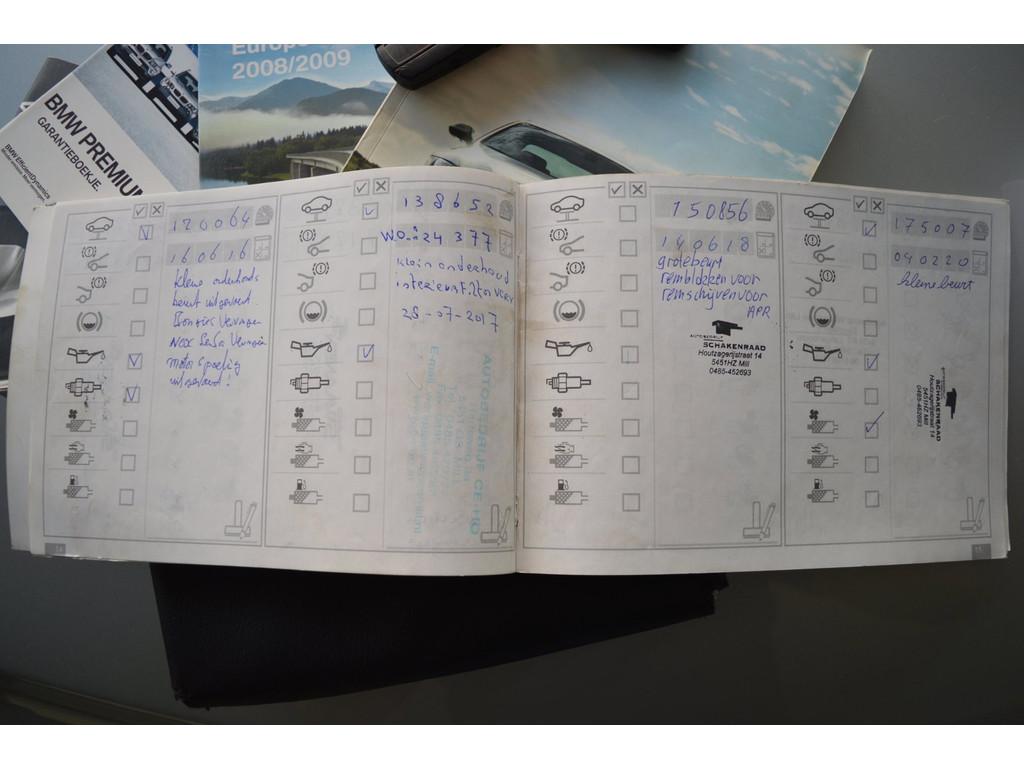 Europe
2008/2009
BMW PREMIUM
GARANTIEBOEKJE
BMW EfficientDynamics
120064
160616
kleine onderhouds
beurt uitgevoerd.
Bougies Vervangen
motor spoeling
uitgevoerd!
138652
W.O.: 24 377
Klein onderhoud
interieurfilter
28-07-2017
AUTOBEDRIJF
150856
140618
grotebeurt
remblokken voor
remschijven voor
APK
AUTOBEDRIJF
SCHAKENRAAD
Houtzagerijstraat 14
5451HZ Mill
0485-452693
175007
040220
kleine beurt
AUTOBEDRIJF
SCHAKENRAAD
Houtzagerijstraat 14
5451HZ Mill
0485-452693